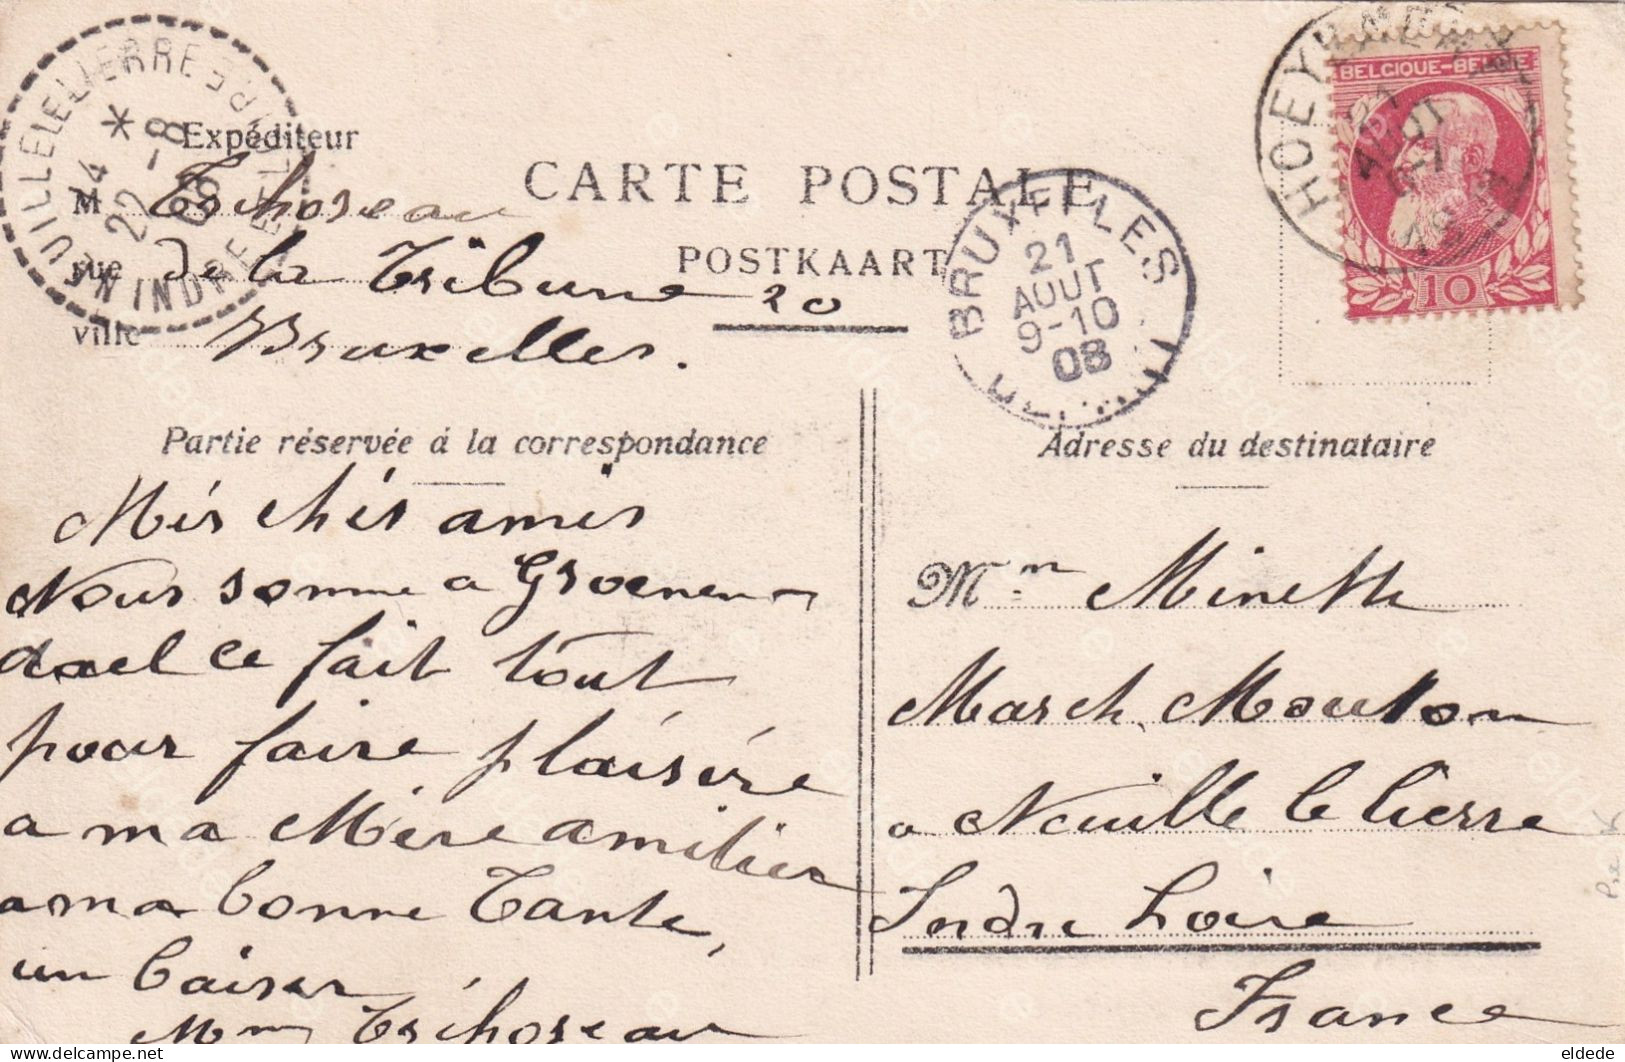 NEUILLE LE LIERRE
INDRE ET LOIRE
*
22 -8
08
Expéditeur
M Tschoseau
rue de la Tribune 20
ville Bruxelles.
CARTE POSTALE
POSTKAART
BRUXELLES
21
AOUT
9-10
08
HOEY
21
AOUT
BELGIQUE-BELGIE
10
Partie réservée à la correspondance
Adresse du destinataire
Més chés amis
Nous somme a Groenen-
dael ce fait tout
pour faire plaisire
a ma Mère amitier
a ma bonne Tante,
un baiser
Mm Tschoseau
Mm Minette
March. Mouton
a Neuille le lierre
Indre Loire
France
eldede